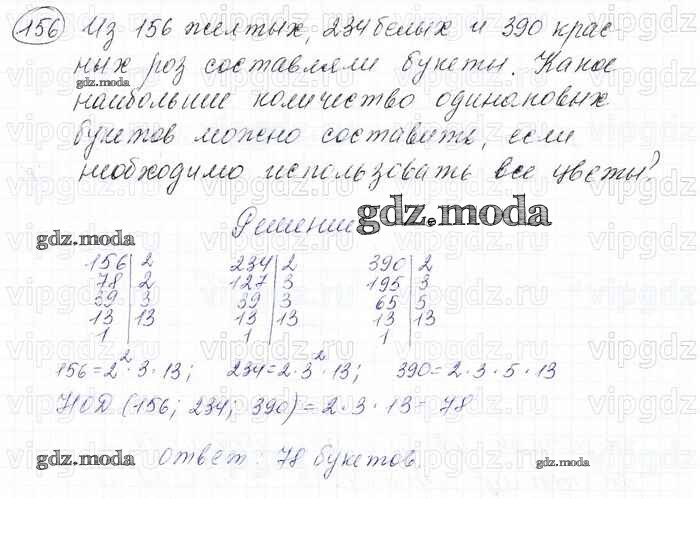 156 Из 156 желтых, 234 белых и 390 крас-
ных роз составляли букеты. Какое
наибольшее количество одинаковых
букетов можно составить, если
необходимо использовать все цветы?
Решение
156 2 234 2 390 2
78 2 127 3 195 3
39 3 39 3 65 5
13 13 13 13 13 13
1 1 1
156=2²·3·13; 234=2·3²·13; 390=2·3·5·13
НОД (156; 234; 390)=2·3·13=78
Ответ: 78 букетов.
gdz.moda
gdz.moda
gdz.moda
gdz.moda
gdz.moda
vipgdz